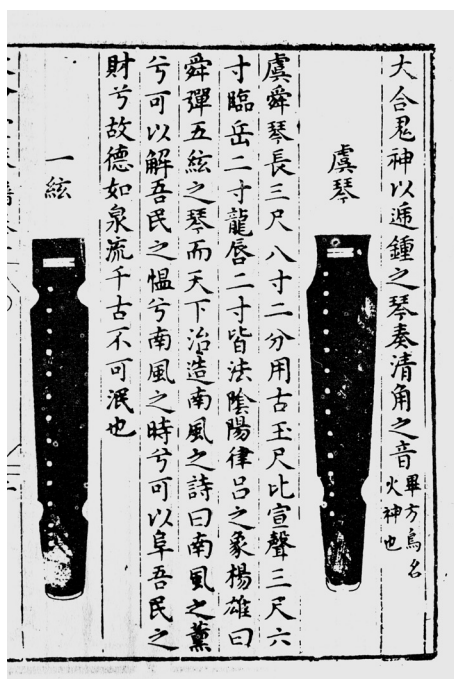 大合鬼神以遞鍾之琴奏清角之音畢方鳥名
火神也
虞琴
虞舜琴長三尺八寸二分用古玉尺比宣聲三尺六
寸臨岳二寸龍唇二寸皆法陰陽律吕之象楊雄曰
舜彈五絃之琴而天下治造南風之詩曰南風之薰
兮可以解吾民之愠兮南風之時兮可以阜吾民之
財兮故德如泉流千古不可泯也
一絃